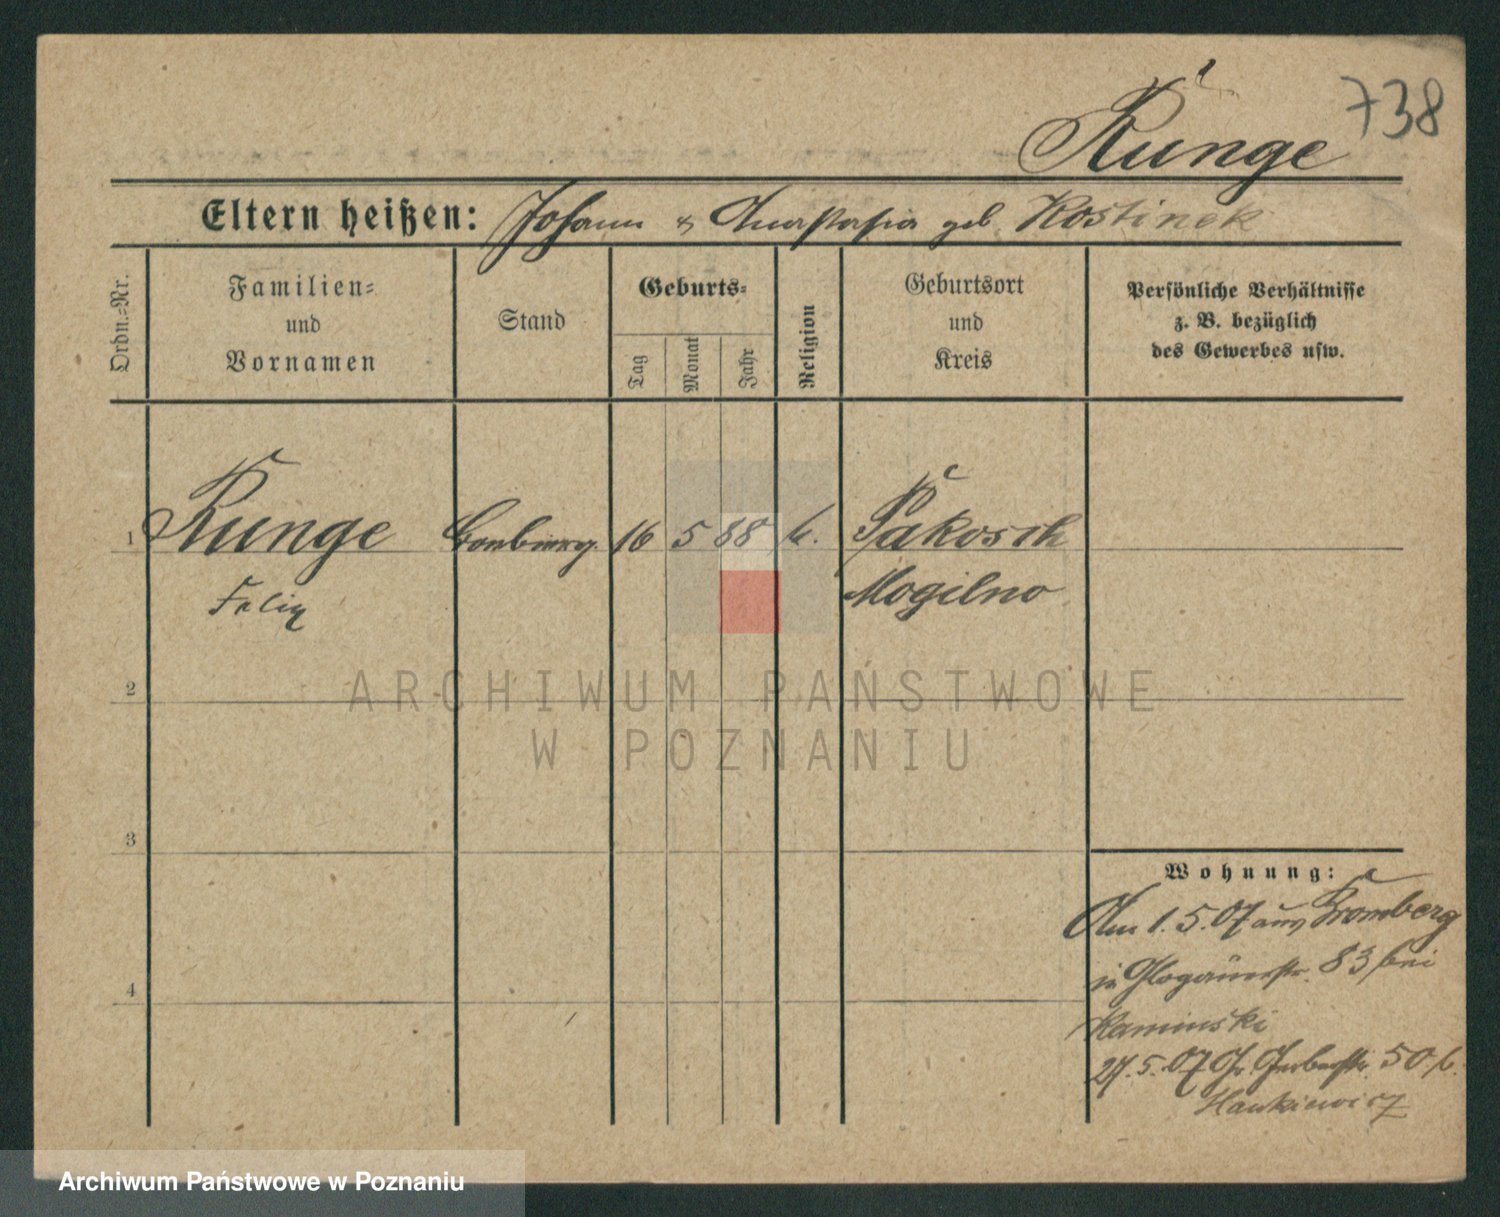 738
Runge
Eltern heißen: Johann & Anastasia geb. Kostinek
Ordn.-Nr.
Familien-
und
Vornamen
Stand
Geburts-
Tag
Monat
Jahr
Religion
Geburtsort
und
Kreis
Persönliche Verhältnisse
z. B. bezüglich
des Gewerbes usw.
1 Runge 16 5 88 k. Pakosch
Felix Mogilno
2
3
4
Wohnung:
Am 1.5.07 aus Bromberg
in Glogauerstr. 83 bei
Kaminski
27.5.07 Gr. Gerberstr. 50 b.
Hankiewicz
ARCHIWUM PAŃSTWOWE
W POZNANIU
Archiwum Państwowe w Poznaniu